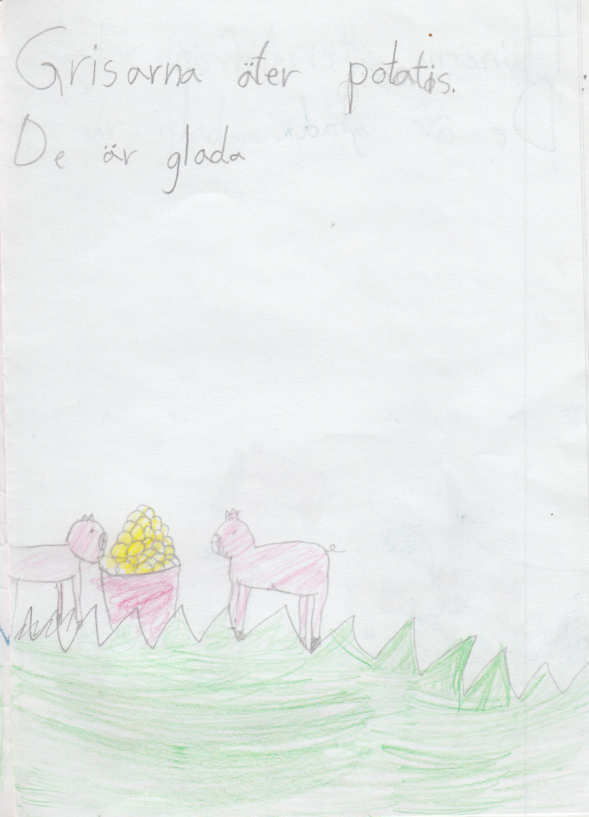 Grisarna äter potatis.
De är glada